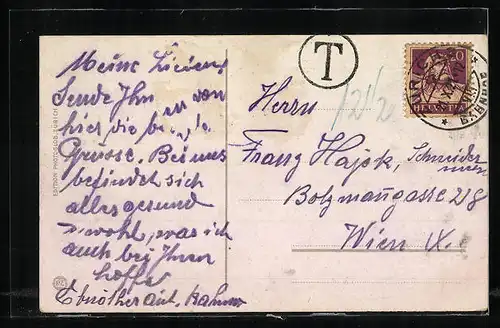 Meine Lieben
Sende Ihn von
hier die be
Grüsse. Bei uns
befindet sich
alles gesund
u wohl, was ich
auch bei Ihnen
hoffe
EDITION PHOTOGLOB ZÜRICH
PZ
T
20
HELVETIA
BAHNHOF
Herrn
Franz Hajek, Schneider
Bolzmanngasse 28
Wien IX.